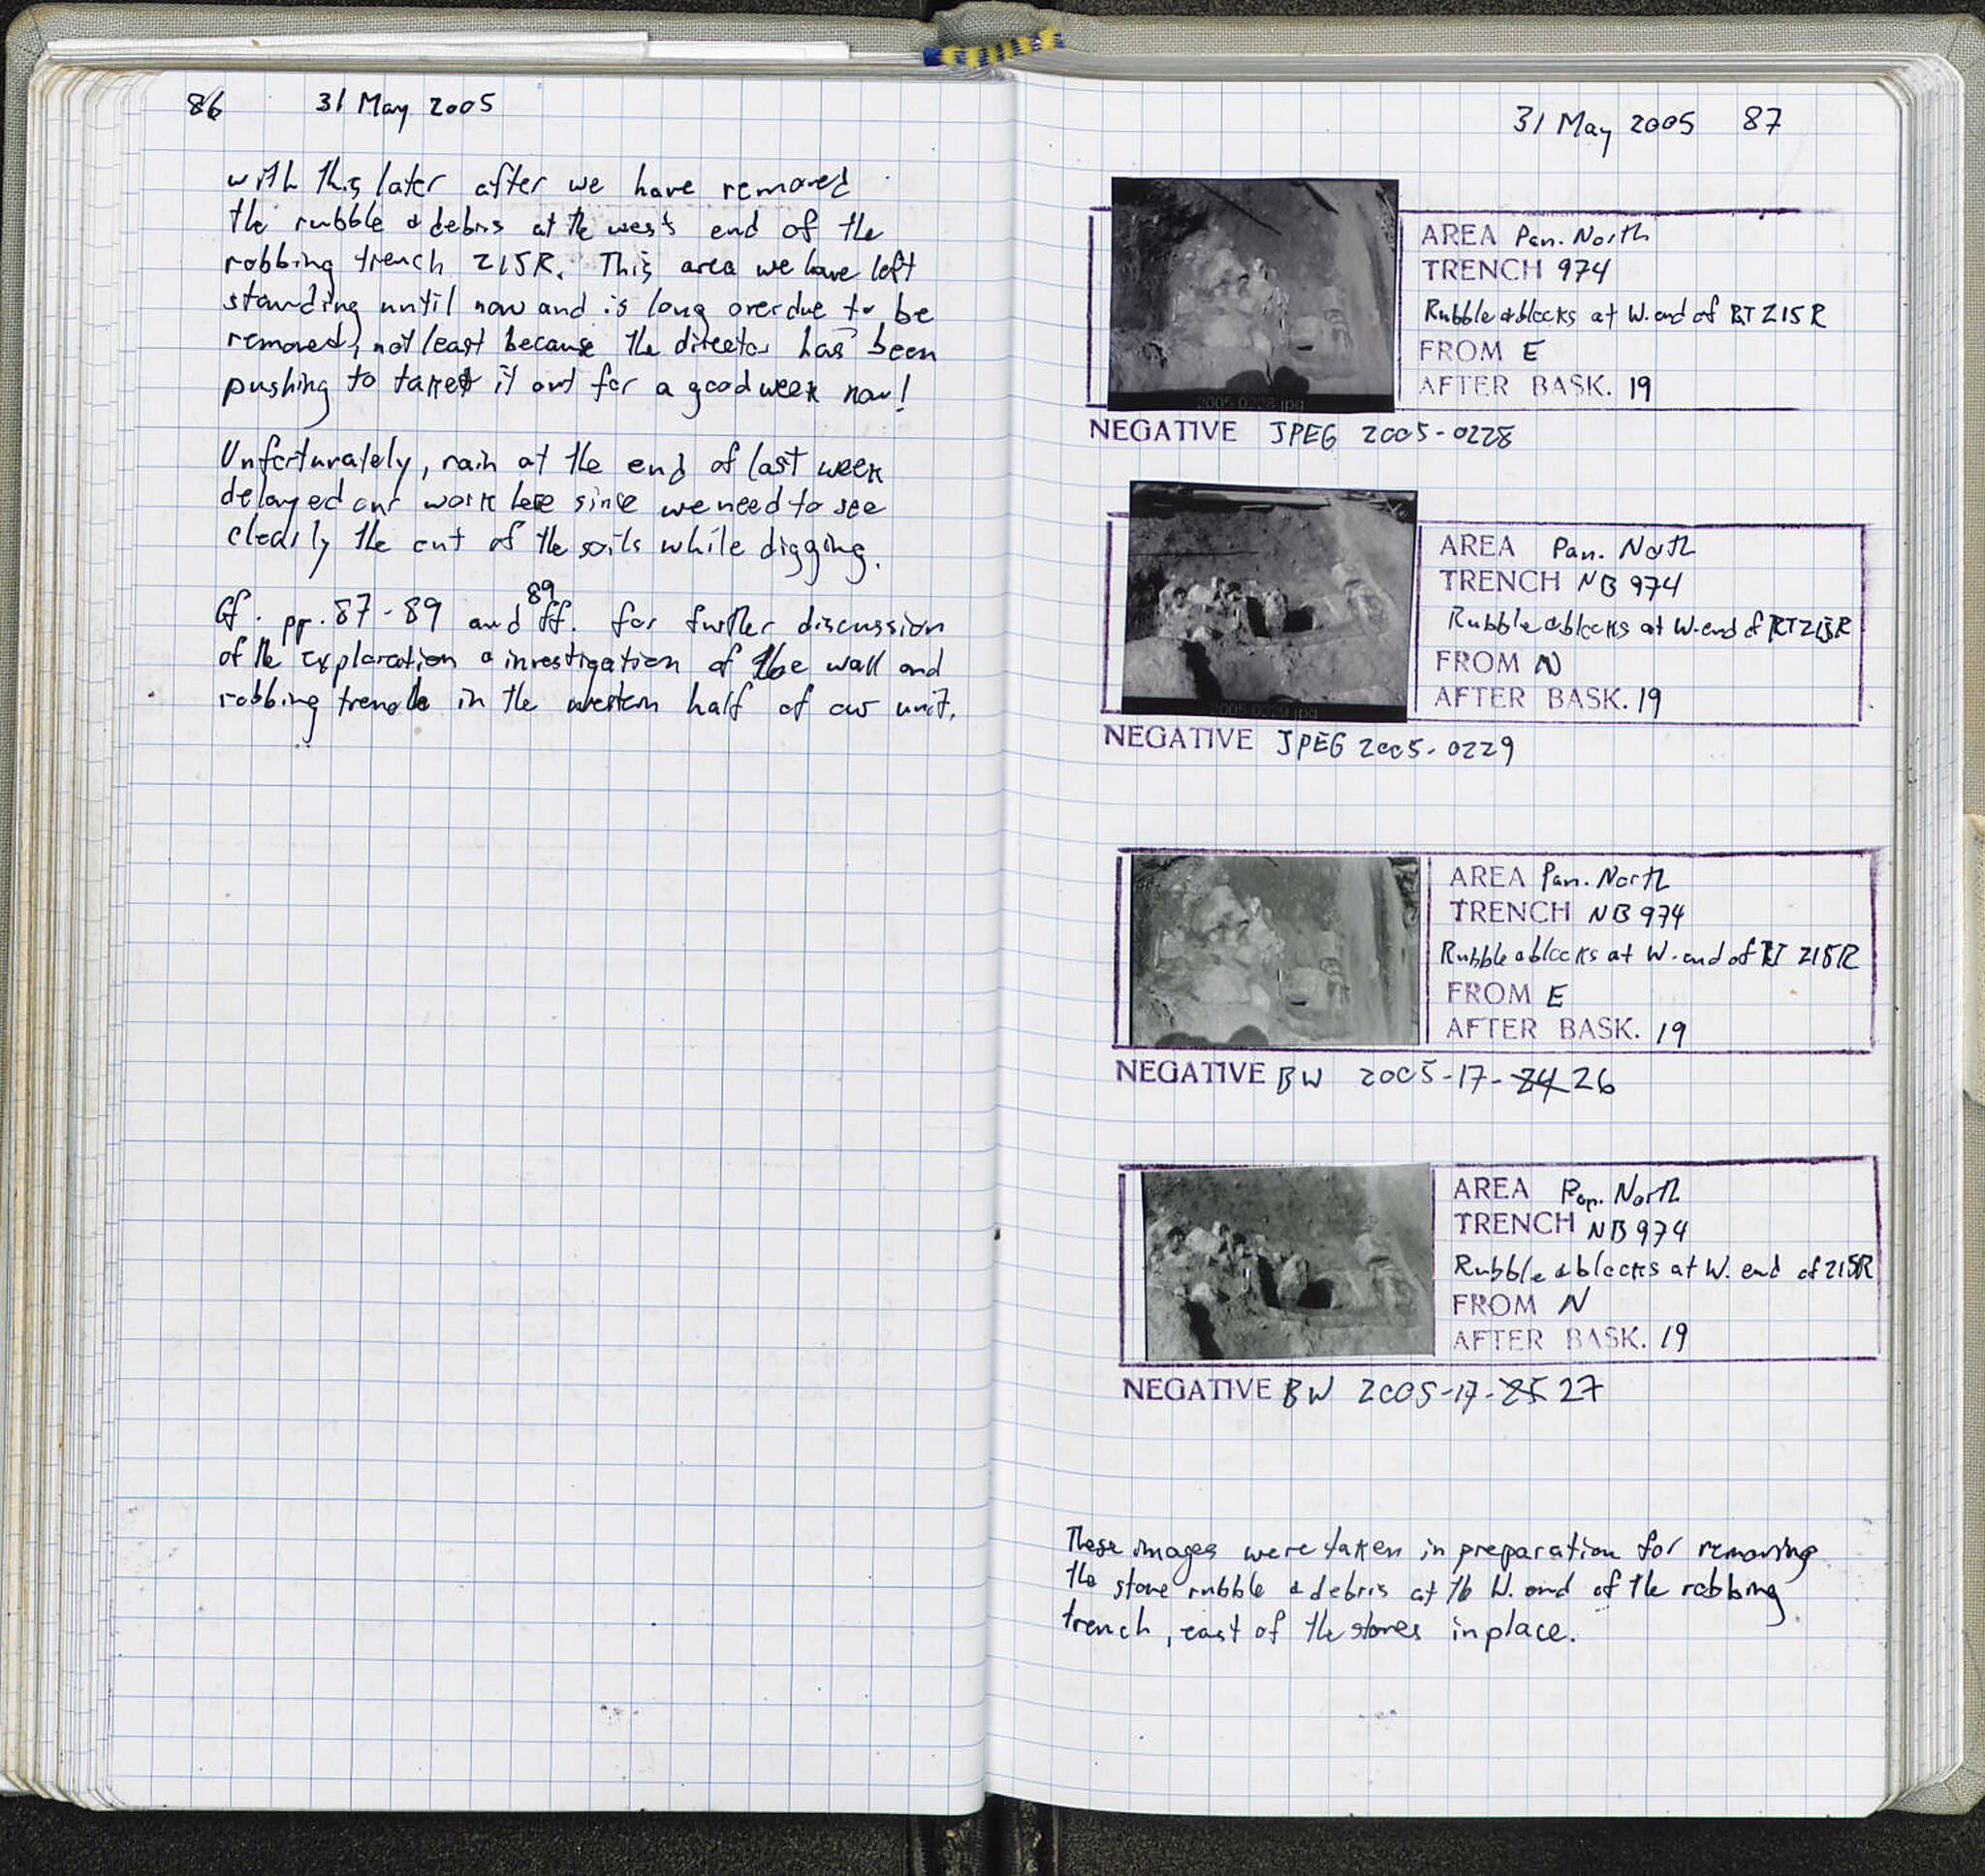 86 31 May 2005
with this later after we have removed
the rubble & debris at the west end of the
robbing trench 215R. This area we have left
standing until now and is long overdue to be
removed, not least because the director has been
pushing to take it out for a good week now!
Unfortunately, rain at the end of last week
delayed our work here since we need to see
clearly the cut of the soils while digging.
Cf. pp. 87-89 and 89 ff. for further discussion
of the exploration & investigation of the wall and
robbing trench in the western half of our unit.
31 May 2005 87
AREA Pan. North
TRENCH 974
Rubble & blocks at W. end of RT 215R
FROM E
AFTER BASK. 19
2005-0228.jpg
NEGATIVE JPEG 2005-0228
AREA Pan. North
TRENCH NB 974
Rubble & blocks at W. end of RT 215R
FROM N
AFTER BASK. 19
2005-0229.jpg
NEGATIVE JPEG 2005-0229
AREA Pan. North
TRENCH NB 974
Rubble & blocks at W. end of RT 215R
FROM E
AFTER BASK. 19
NEGATIVE BW 2005-17-24 26
AREA Pan. North
TRENCH NB 974
Rubble & blocks at W. end of 215R
FROM N
AFTER BASK. 19
NEGATIVE BW 2005-17-25 27
These images were taken in preparation for removing
the stone rubble & debris at the W. end of the robbing
trench, east of the stones in place.